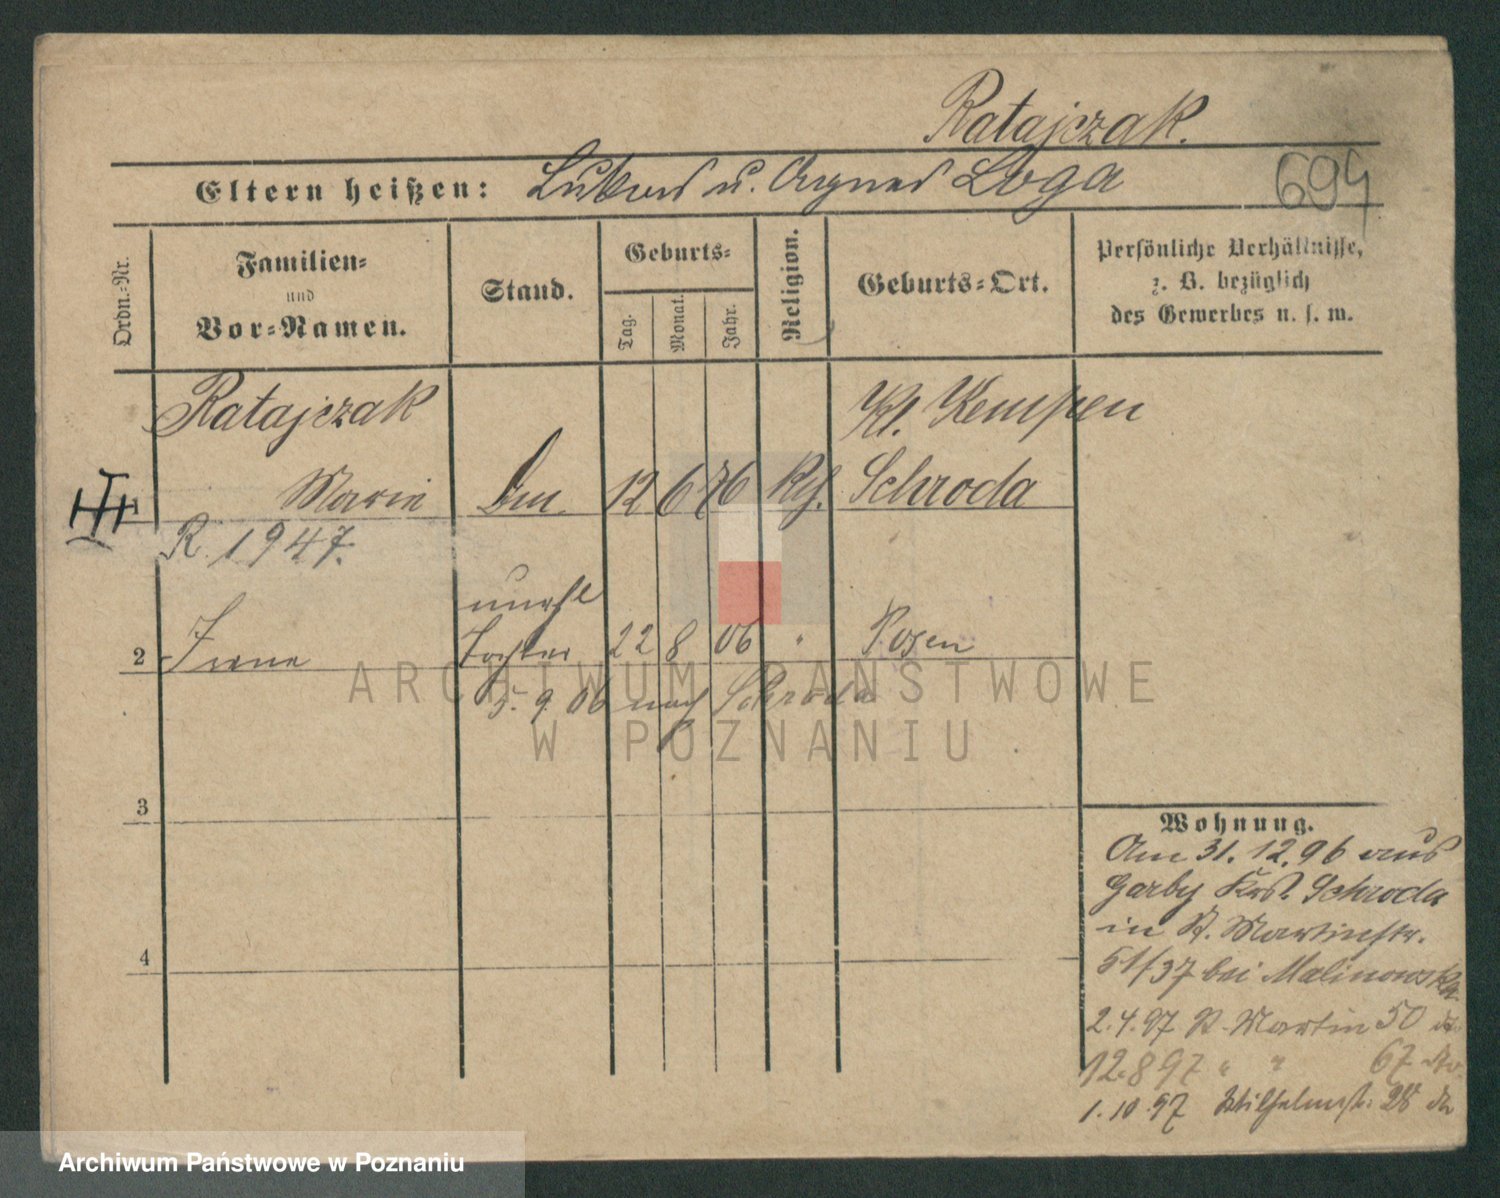 Ratajczak.
694
Eltern heißen: Lukas u. Agnes Loga
Ordn.=Nr.
Familien=
und
Vor=Namen.
Stand.
Geburts=
Tag.
Monat.
Jahr.
Religion.
Geburts=Ort.
Persönliche Verhältnisse,
z. B. bezüglich
des Gewerbes u. s. w.
Ratajczak
Kl. Kempen
Marie
12 6 76
Schroda
R. 1947.
unehl
2 Irene Tochter 22 8 06 " Posen
5. 9. 06 nach Schroda
3
4
Wohnung.
Am 31. 12. 96 aus
Garby Krs. Schroda
in St. Martinstr.
51/37 bei Malinowska
2.4.97 St. Martin 50 do
12.8 97 " " 67 do
1. 10 97 Wilhelmstr. 28 do
ARCHIWUM PAŃSTWOWE
W POZNANIU
Archiwum Państwowe w Poznaniu